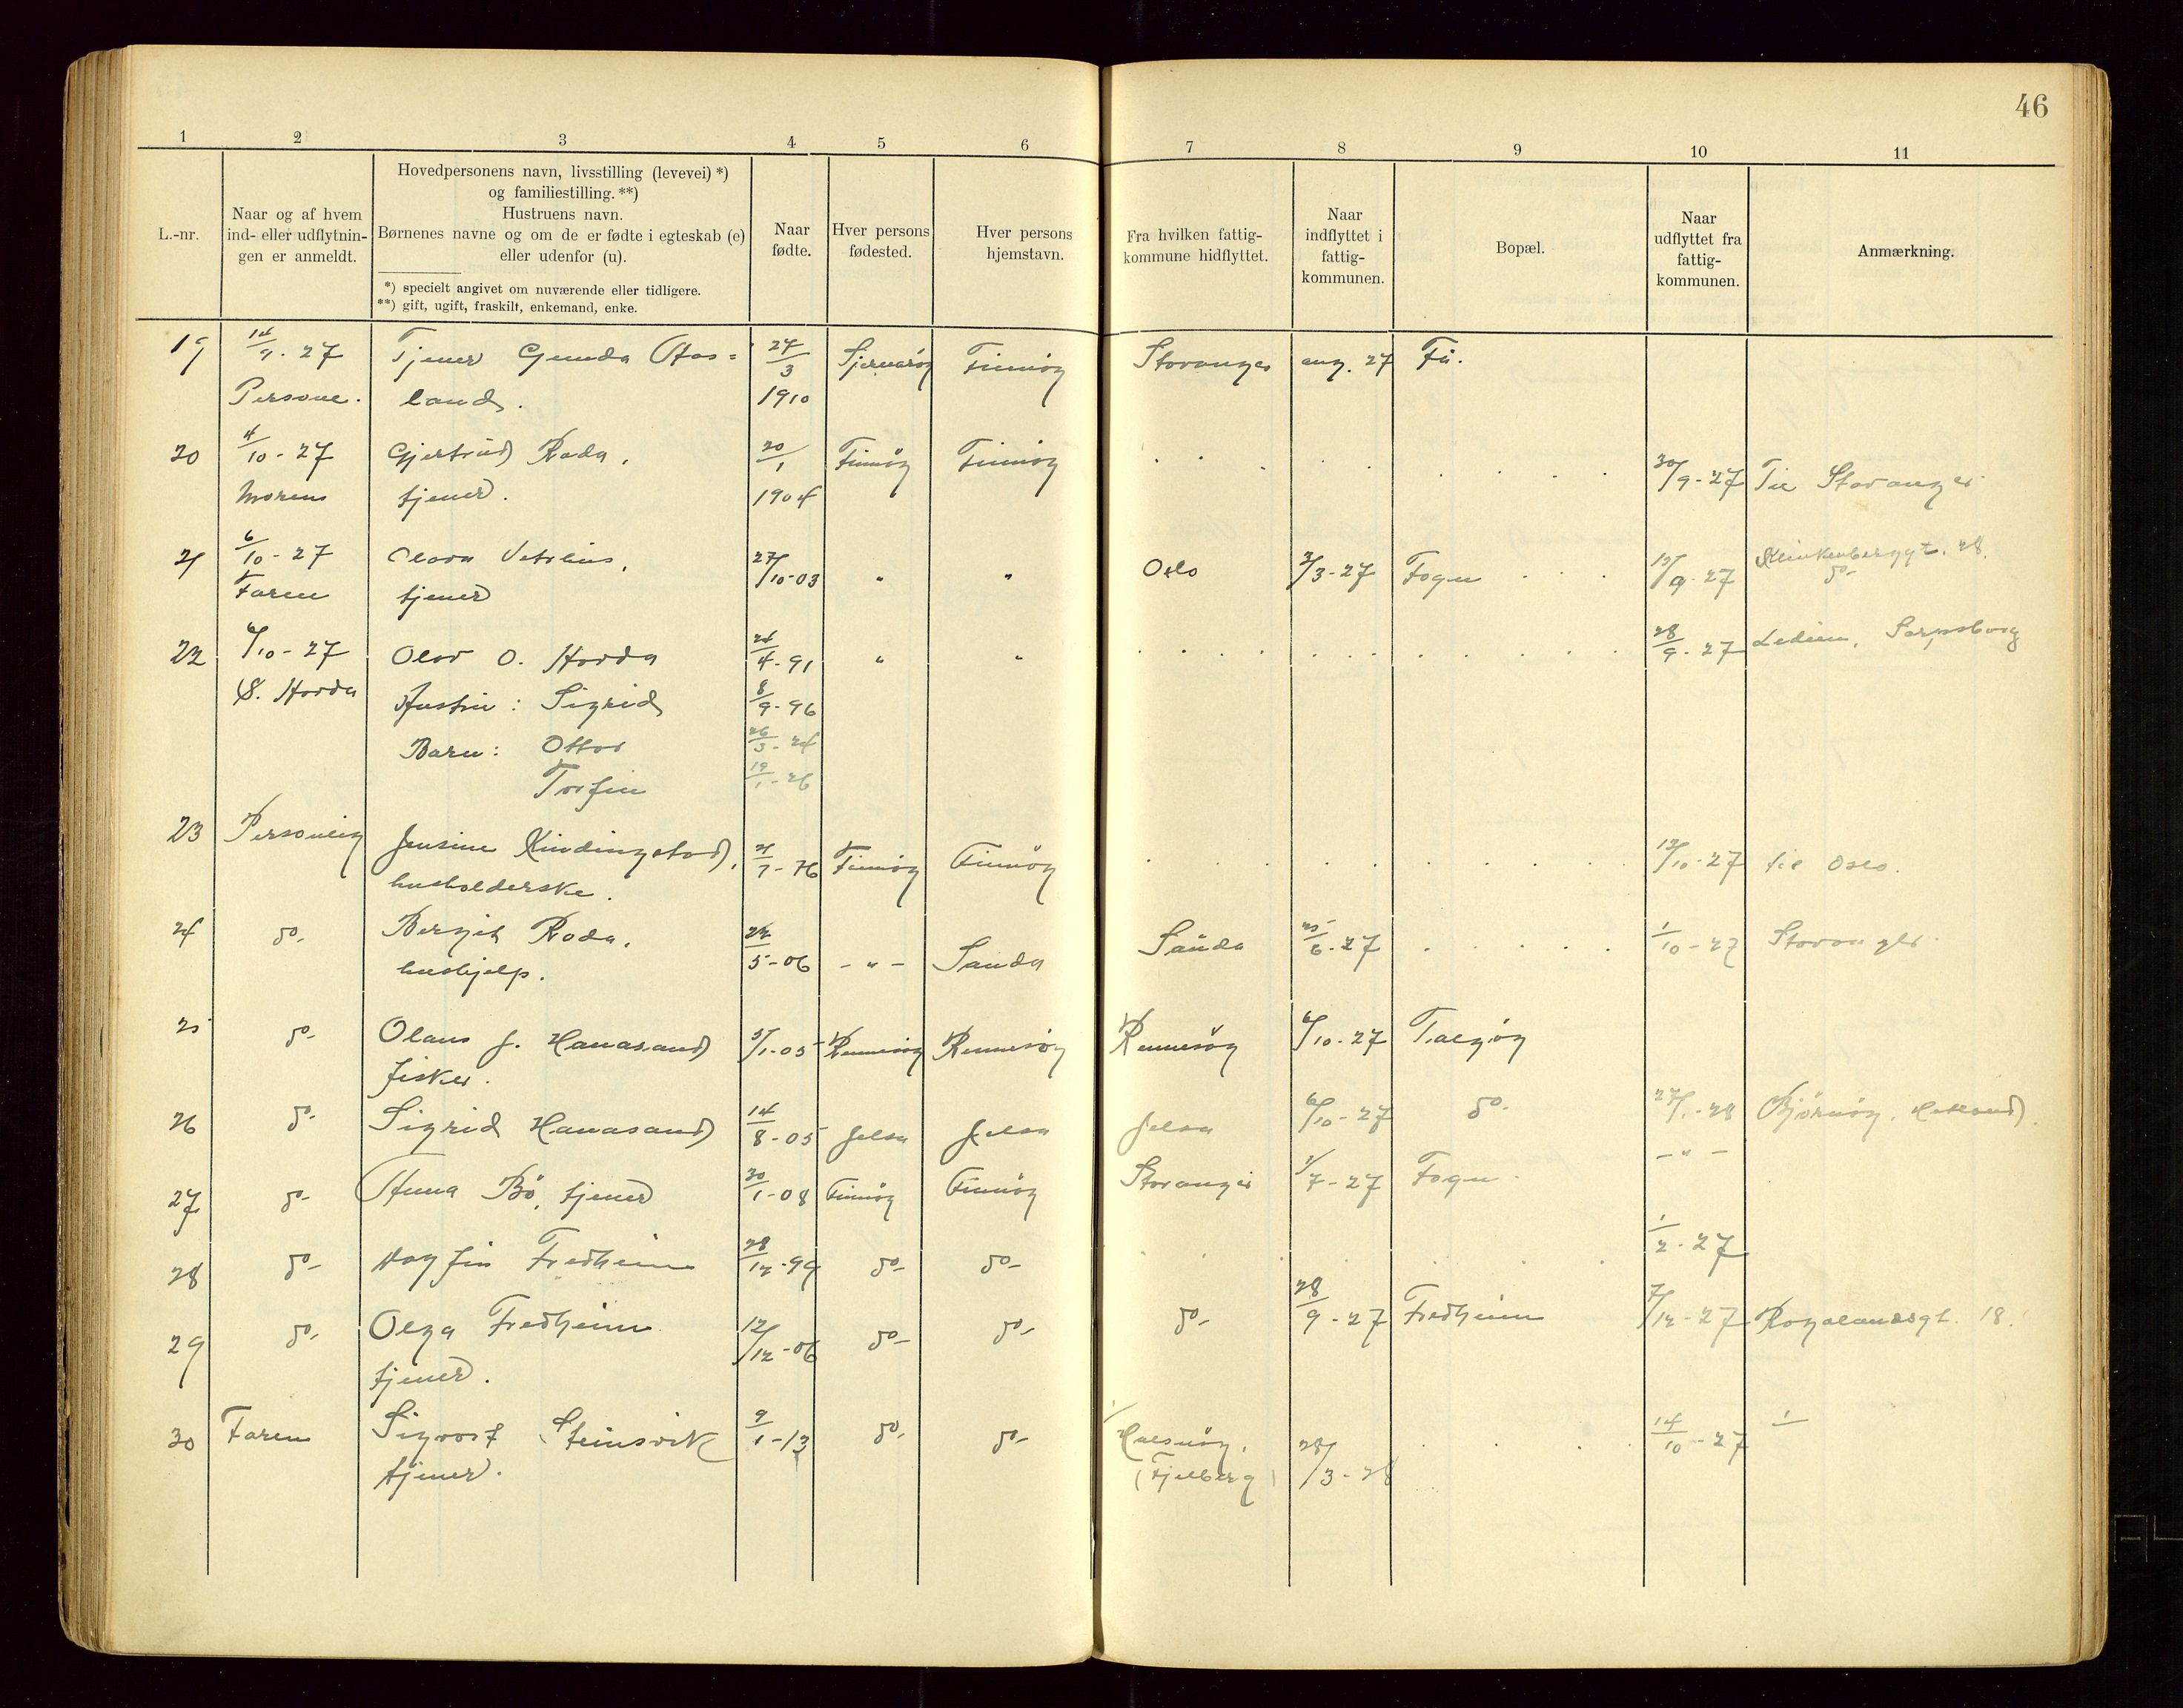 46
1 2 3 4 5 6 7 8 9 10 11
L.-nr.
Naar og af hvem
ind- eller udflytnin-
gen er anmeldt.
Hovedpersonens navn, livsstilling (levevei) *)
og familiestilling. **)
Hustruens navn.
Børnenes navne og om de er fødte i egteskab (e)
eller udenfor (u).
*) specielt angivet om nuværende eller tidligere.
**) gift, ugift, fraskilt, enkemand, enke.
Naar
fødte.
Hver persons
fødested.
Hver persons
hjemstavn.
Fra hvilken fattig-
kommune hidflyttet.
Naar
indflyttet i
fattig-
kommunen.
Bopæl.
Naar
udflyttet fra
fattig-
kommunen.
Anmærkning.
19 14/9-27 Tjener Gunda Aas= 24/3 Sjernarøy Finnöy Stavanger aug. 27
Persone. land. 1910
20 4/10-27 Gjertrud Roda, 20/1 Finnöy Finnöy 30/9-27 Til Stavanger
Morens tjener. 1904
21 6/10-27 Olava Vetrhus, 27/10-03 " " Oslo 3/3-27 Fogn /9-27 Klinkenberggt. 28.
Faren tjener do-
22 6/10-27 Olav O. Hovda 24/4-91 " " 28/9-27 Sarpsborg
S. Hovda Hustru: Sigrid 8/9-96
Barn: Ottar 26/3-24
Torfin 19/1-26
23 Personlig Jensine Kindingstad, 21/7-76 Finnöy Finnöy 12/10-27 til Oslo.
husholderske.
24 do- Bergit Roda, 24/5-06 - " - Sauda Sauda 25/6-27 1/10-27 Stavanger.
hushjelp.
25 do- Olaus J. Hanasand 5/1-05 Rennesöy Rennesöy Rennesöy 6/10-27 Talgöy
fisker.
26 do- Sigrid Hanasand 14/8-05 Jelsa Jelsa Jelsa 6/10-27 do- 27/1-28 Björnöy, Hetland.
27 do- Anna Bö, tjener 30/1-08 Finnöy Finnöy Stavanger 1/7-27 Fogn - " -
28 do- Dagfin Fredheim 28/12-99 do- do- 1/2-27
29 do- Olga Fredheim 12/12-06 do- do- do- 28/9-27 Fredheim 7/12-27 Rogalandsgt. 18.
tjener.
30 Faren Sigvart Steinsvik 9/1-13 do- do- Halsnöy, 28/3-28 14/10-27
tjener. (Fjelberg)